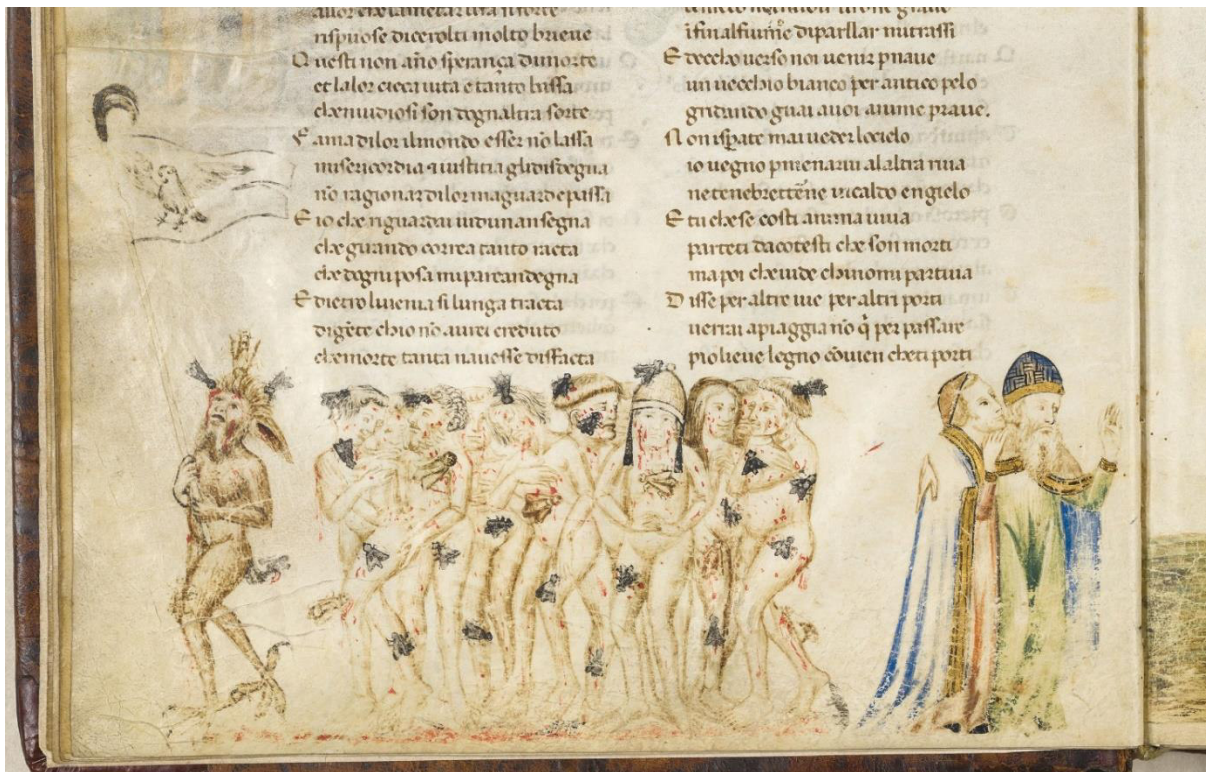 rispuose dicerolti molto brieue
Questi non año sperança dimorte
et lalor ciecа uita e tanto bassa
che nuidiosi son dognaltra sorte
Fama dilor ilmondo esser nõ lassa
misericordia & iustitia glidisdegna
nõ ragionar dilor maguarda epassa
E io che riguardai uidunansegna
che girando correa tanto racta
che dogni posa mi parea ndegna
E dietro luienia si lunga tracta
digẽte chio nõ aurei creduto
che morte tanta nauesse disfacta
ifinalfiume diparlar mi trassi
E deccho uerso noi uenir p naue
un uecchio bianco per antico pelo
gridando guai auoi anime praue.
Non isperate mai ueder locielo
io uegno p menarui alaltra riua
ne tenebre ettẽne icaldo engielo
E tu che se costi anima uiua
parteti dacotesti che son morti
ma poi che uide chinonmi partiua
Disse per altre uie per altri porti
uerrai apiaggia nõ q̃ per passare
piolieue legno cõuien cheti porti